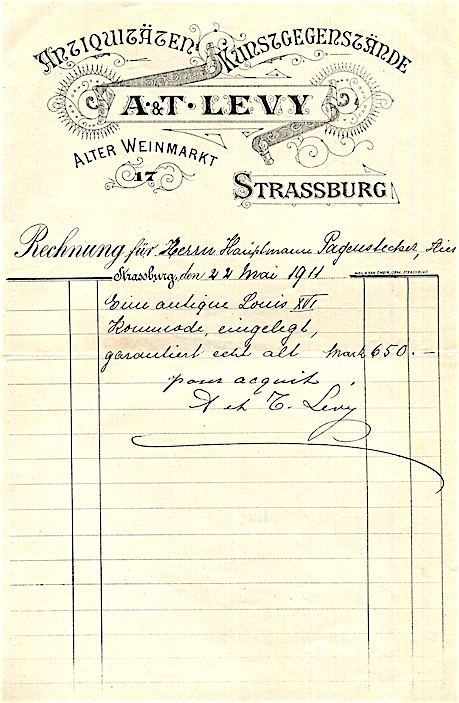 ANTIQUITÄTEN KUNSTGEGENSTÄNDE
A. & T. LEVY
ALTER WEINMARKT
17
STRASSBURG
Rechnung für Herrn Hauptmann Pagenstecher, Hier
Strassburg, den 22 Mai 1911
Eine antique Louis XVI
Kommode, eingelegt,
garantiert echt alt Mark 650.—
pour acquit.
A et T. Levy